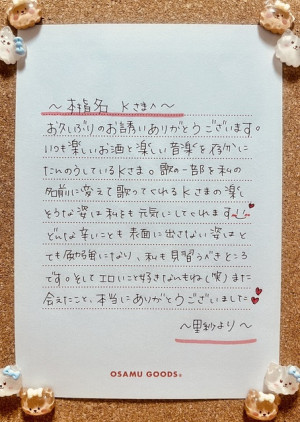 〜椿名 Kさまへ〜
お久しぶりのお誘いありがとうございます。
いつも楽しいお酒と楽しい音楽を存分に
たのしうているKさま。歌の一部を私の
名前に変えて歌ってくれるKさまの楽し
そうな姿は私まで元気にしてくれます
どんな辛いことも表面に出さない姿はと
ても勉強になり、私も見習うべきところ
です。そしてエロいこと好きなんもね(笑)また
会えたこと、本当にありがとうございました
〜里紗より〜
OSAMU GOODS®